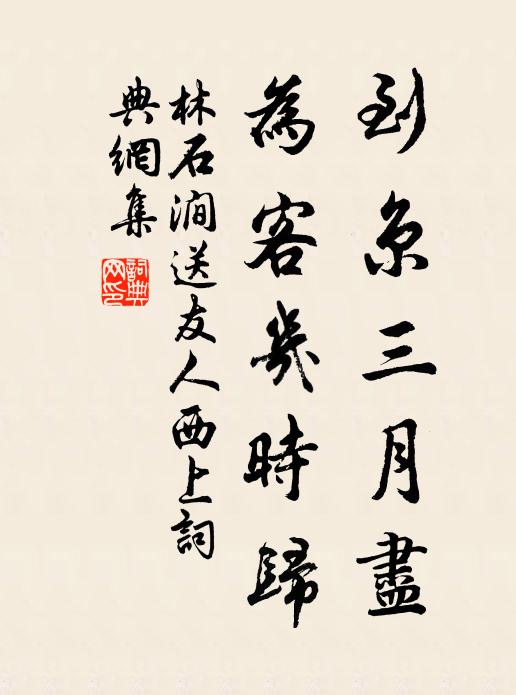 到京三月盡
為客幾時歸
林石澗送友人西上詞
典網集
詞典
网印